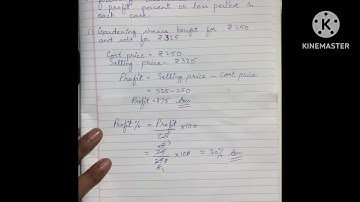 profit percent or loss percent in
each case.
1) Gardening shears bought for ₹250
and sold for ₹325
Cost price = ₹250
Selling price = ₹325
Profit = Selling price - Cost price
= 325-250
Profit = ₹75 Ans
Profit % = Profit × 100
C.P
= 75 × 100 = 30% Ans
250
KINEMASTER